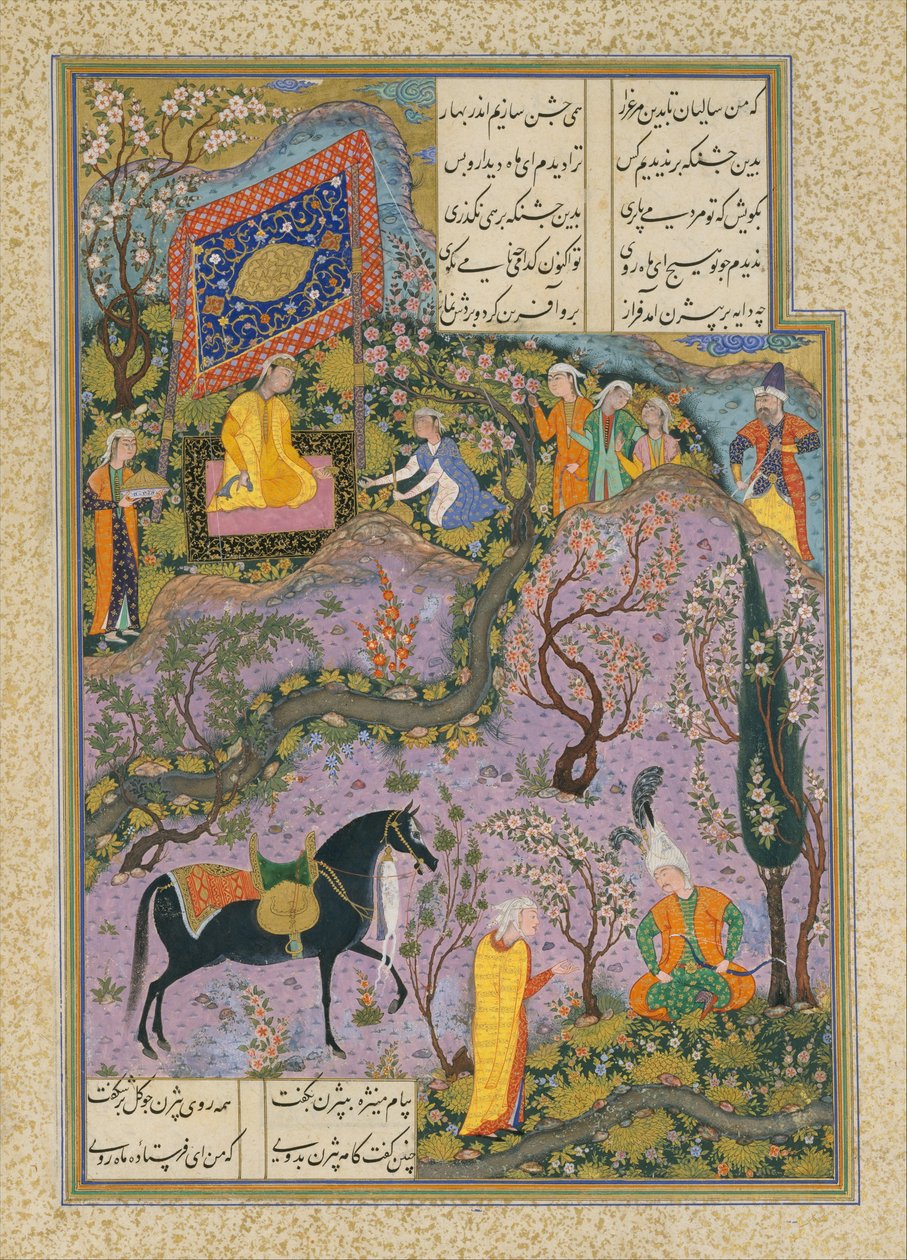 که من سالیان تا بدین مرغزار همی جشن سازیم اندر بهار
بدین جشنکه بر ندیدیم کس ترا دیدم ای ماه دیدار و بس
بکویش که تو مردمی یا پری بدین جشنکه بر همی نکذری
ندیدم چو تو هیچ ای ماه روی تو اکنون کدامی می بکوی
چه دایه بر بیژن آمد فراز برو آفرین کرد و بردش نماز
پیام منیژه به بیژن بگفت همه روی بیژن چو کل بر شکفت
چنین گفت کامه بیژن بدوی که من ای فرستاده ماه روی